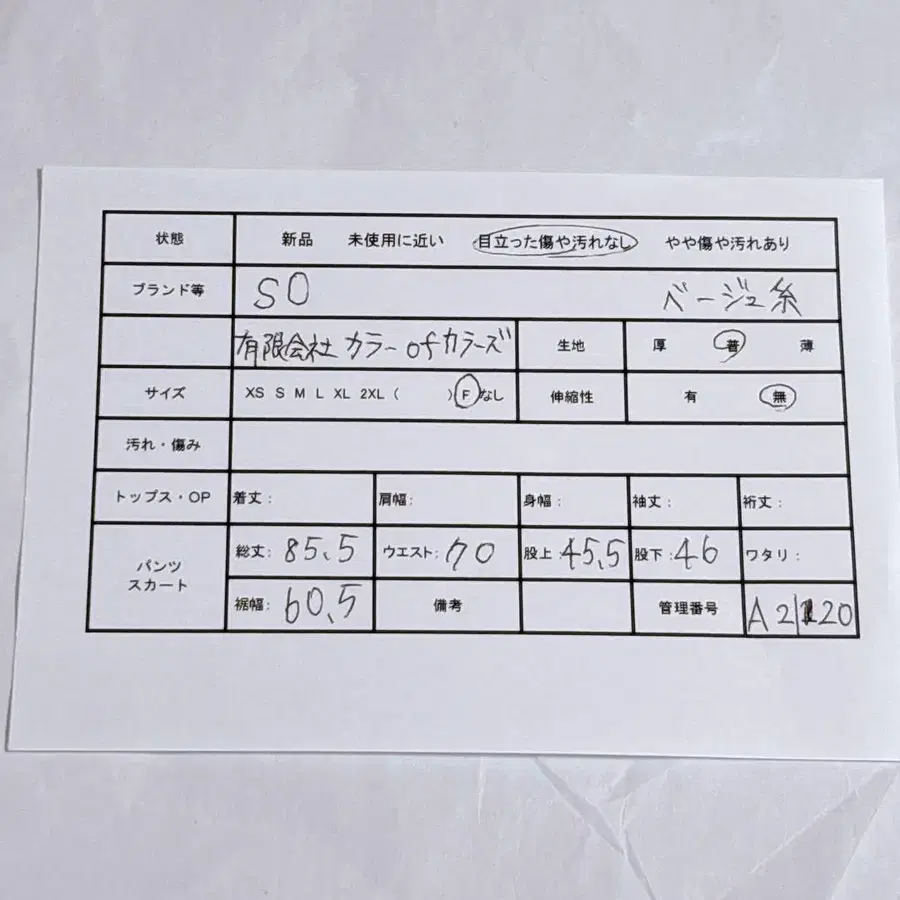 状態 新品 未使用に近い 目立った傷や汚れなし やや傷や汚れあり
ブランド等 SO ベージュ糸
有限会社 カラー of カラーズ 生地 厚 普 薄
サイズ XS S M L XL 2XL ( ) F なし 伸縮性 有 無
汚れ・傷み
トップス・OP 着丈: 肩幅: 身幅: 袖丈: 裄丈:
パンツ スカート 総丈: 85.5 ウエスト: 70 股上: 45.5 股下: 46 ワタリ:
裾幅: 60.5 備考 管理番号